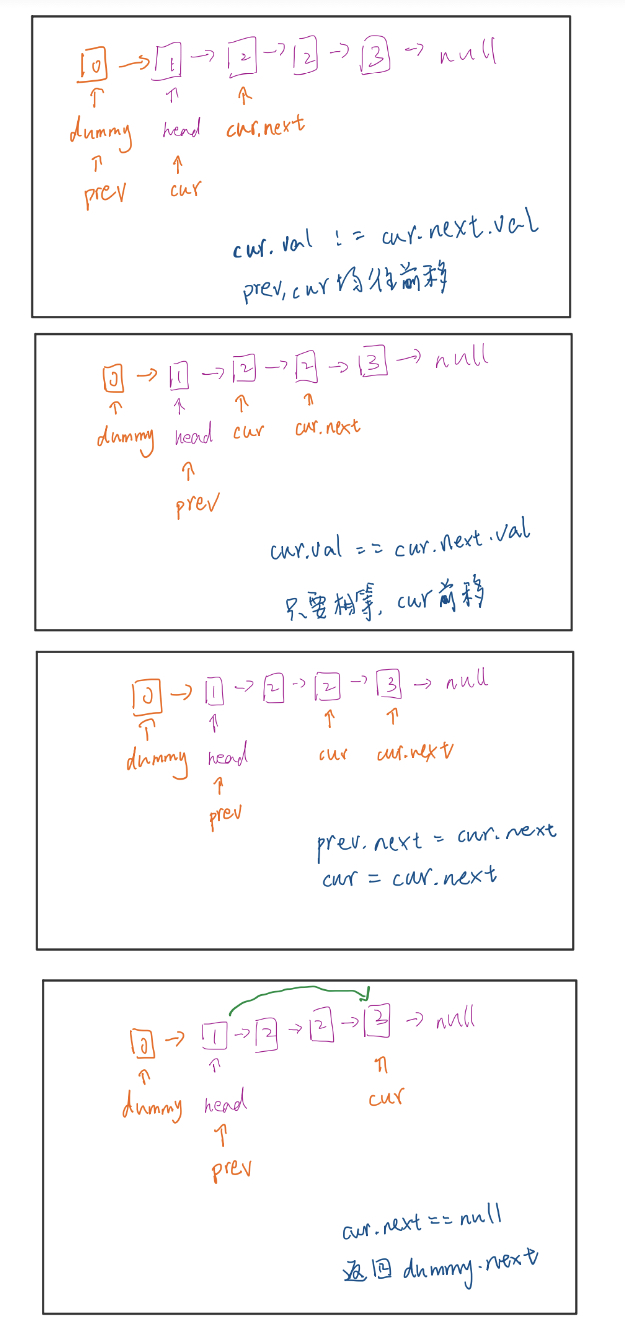 0 → 1 → 2 → 2 → 3 → null
dummy head cur.next
prev cur
cur.val != cur.next.val
prev,cur均往前移
0 → 1 → 2 → 2 → 3 → null
dummy head cur cur.next
prev
cur.val == cur.next.val
只要相等, cur前移
0 → 1 → 2 → 2 → 3 → null
dummy head cur cur.next
prev
prev.next = cur.next
cur = cur.next
0 → 1 → 2 → 2 → 3 → null
dummy head cur
prev
cur.next == null
返回 dummy.next